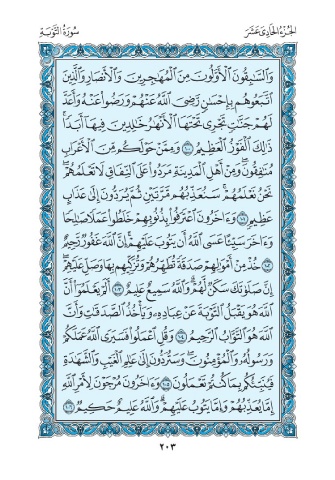 الجزء الحادي عشر
سورة التوبة
وَالسَّابِقُونَ الْأَوَّلُونَ مِنَ الْمُهَاجِرِينَ وَالْأَنصَارِ وَالَّذِينَ
اتَّبَعُوهُم بِإِحْسَانٍ رَّضِيَ اللَّهُ عَنْهُمْ وَرَضُوا عَنْهُ وَأَعَدَّ
لَهُمْ جَنَّاتٍ تَجْرِي تَحْتَهَا الْأَنْهَارُ خَالِدِينَ فِيهَا أَبَدًا
ذَٰلِكَ الْفَوْزُ الْعَظِيمُ ١٠٠ وَمِمَّنْ حَوْلَكُم مِّنَ الْأَعْرَابِ
مُنَافِقُونَ وَمِنْ أَهْلِ الْمَدِينَةِ مَرَدُوا عَلَى النِّفَاقِ لَا تَعْلَمُهُمْ
نَحْنُ نَعْلَمُهُمْ سَنُعَذِّبُهُم مَّرَّتَيْنِ ثُمَّ يُرَدُّونَ إِلَىٰ عَذَابٍ
عَظِيمٍ ١٠١ وَآخَرُونَ اعْتَرَفُوا بِذُنُوبِهِمْ خَلَطُوا عَمَلًا صَالِحًا
وَآخَرَ سَيِّئًا عَسَى اللَّهُ أَن يَتُوبَ عَلَيْهِمْ إِنَّ اللَّهَ غَفُورٌ رَّحِيمٌ
١٠٢ خُذْ مِنْ أَمْوَالِهِمْ صَدَقَةً تُطَهِّرُهُمْ وَتُزَكِّيهِم بِهَا وَصَلِّ عَلَيْهِمْ
إِنَّ صَلَاتَكَ سَكَنٌ لَّهُمْ وَاللَّهُ سَمِيعٌ عَلِيمٌ ١٠٣ أَلَمْ يَعْلَمُوا أَنَّ
اللَّهَ هُوَ يَقْبَلُ التَّوْبَةَ عَنْ عِبَادِهِ وَيَأْخُذُ الصَّدَقَاتِ وَأَنَّ
اللَّهَ هُوَ التَّوَّابُ الرَّحِيمُ ١٠٤ وَقُلِ اعْمَلُوا فَسَيَرَى اللَّهُ عَمَلَكُمْ
وَرَسُولُهُ وَالْمُؤْمِنُونَ وَسَتُرَدُّونَ إِلَىٰ عَالِمِ الْغَيْبِ وَالشَّهَادَةِ
فَيُنَبِّئُكُم بِمَا كُنتُمْ تَعْمَلُونَ ١٠٥ وَآخَرُونَ مُرْجَوْنَ لِأَمْرِ اللَّهِ
إِمَّا يُعَذِّبُهُمْ وَإِمَّا يَتُوبُ عَلَيْهِمْ وَاللَّهُ عَلِيمٌ حَكِيمٌ ١٠٦
٢٠٣